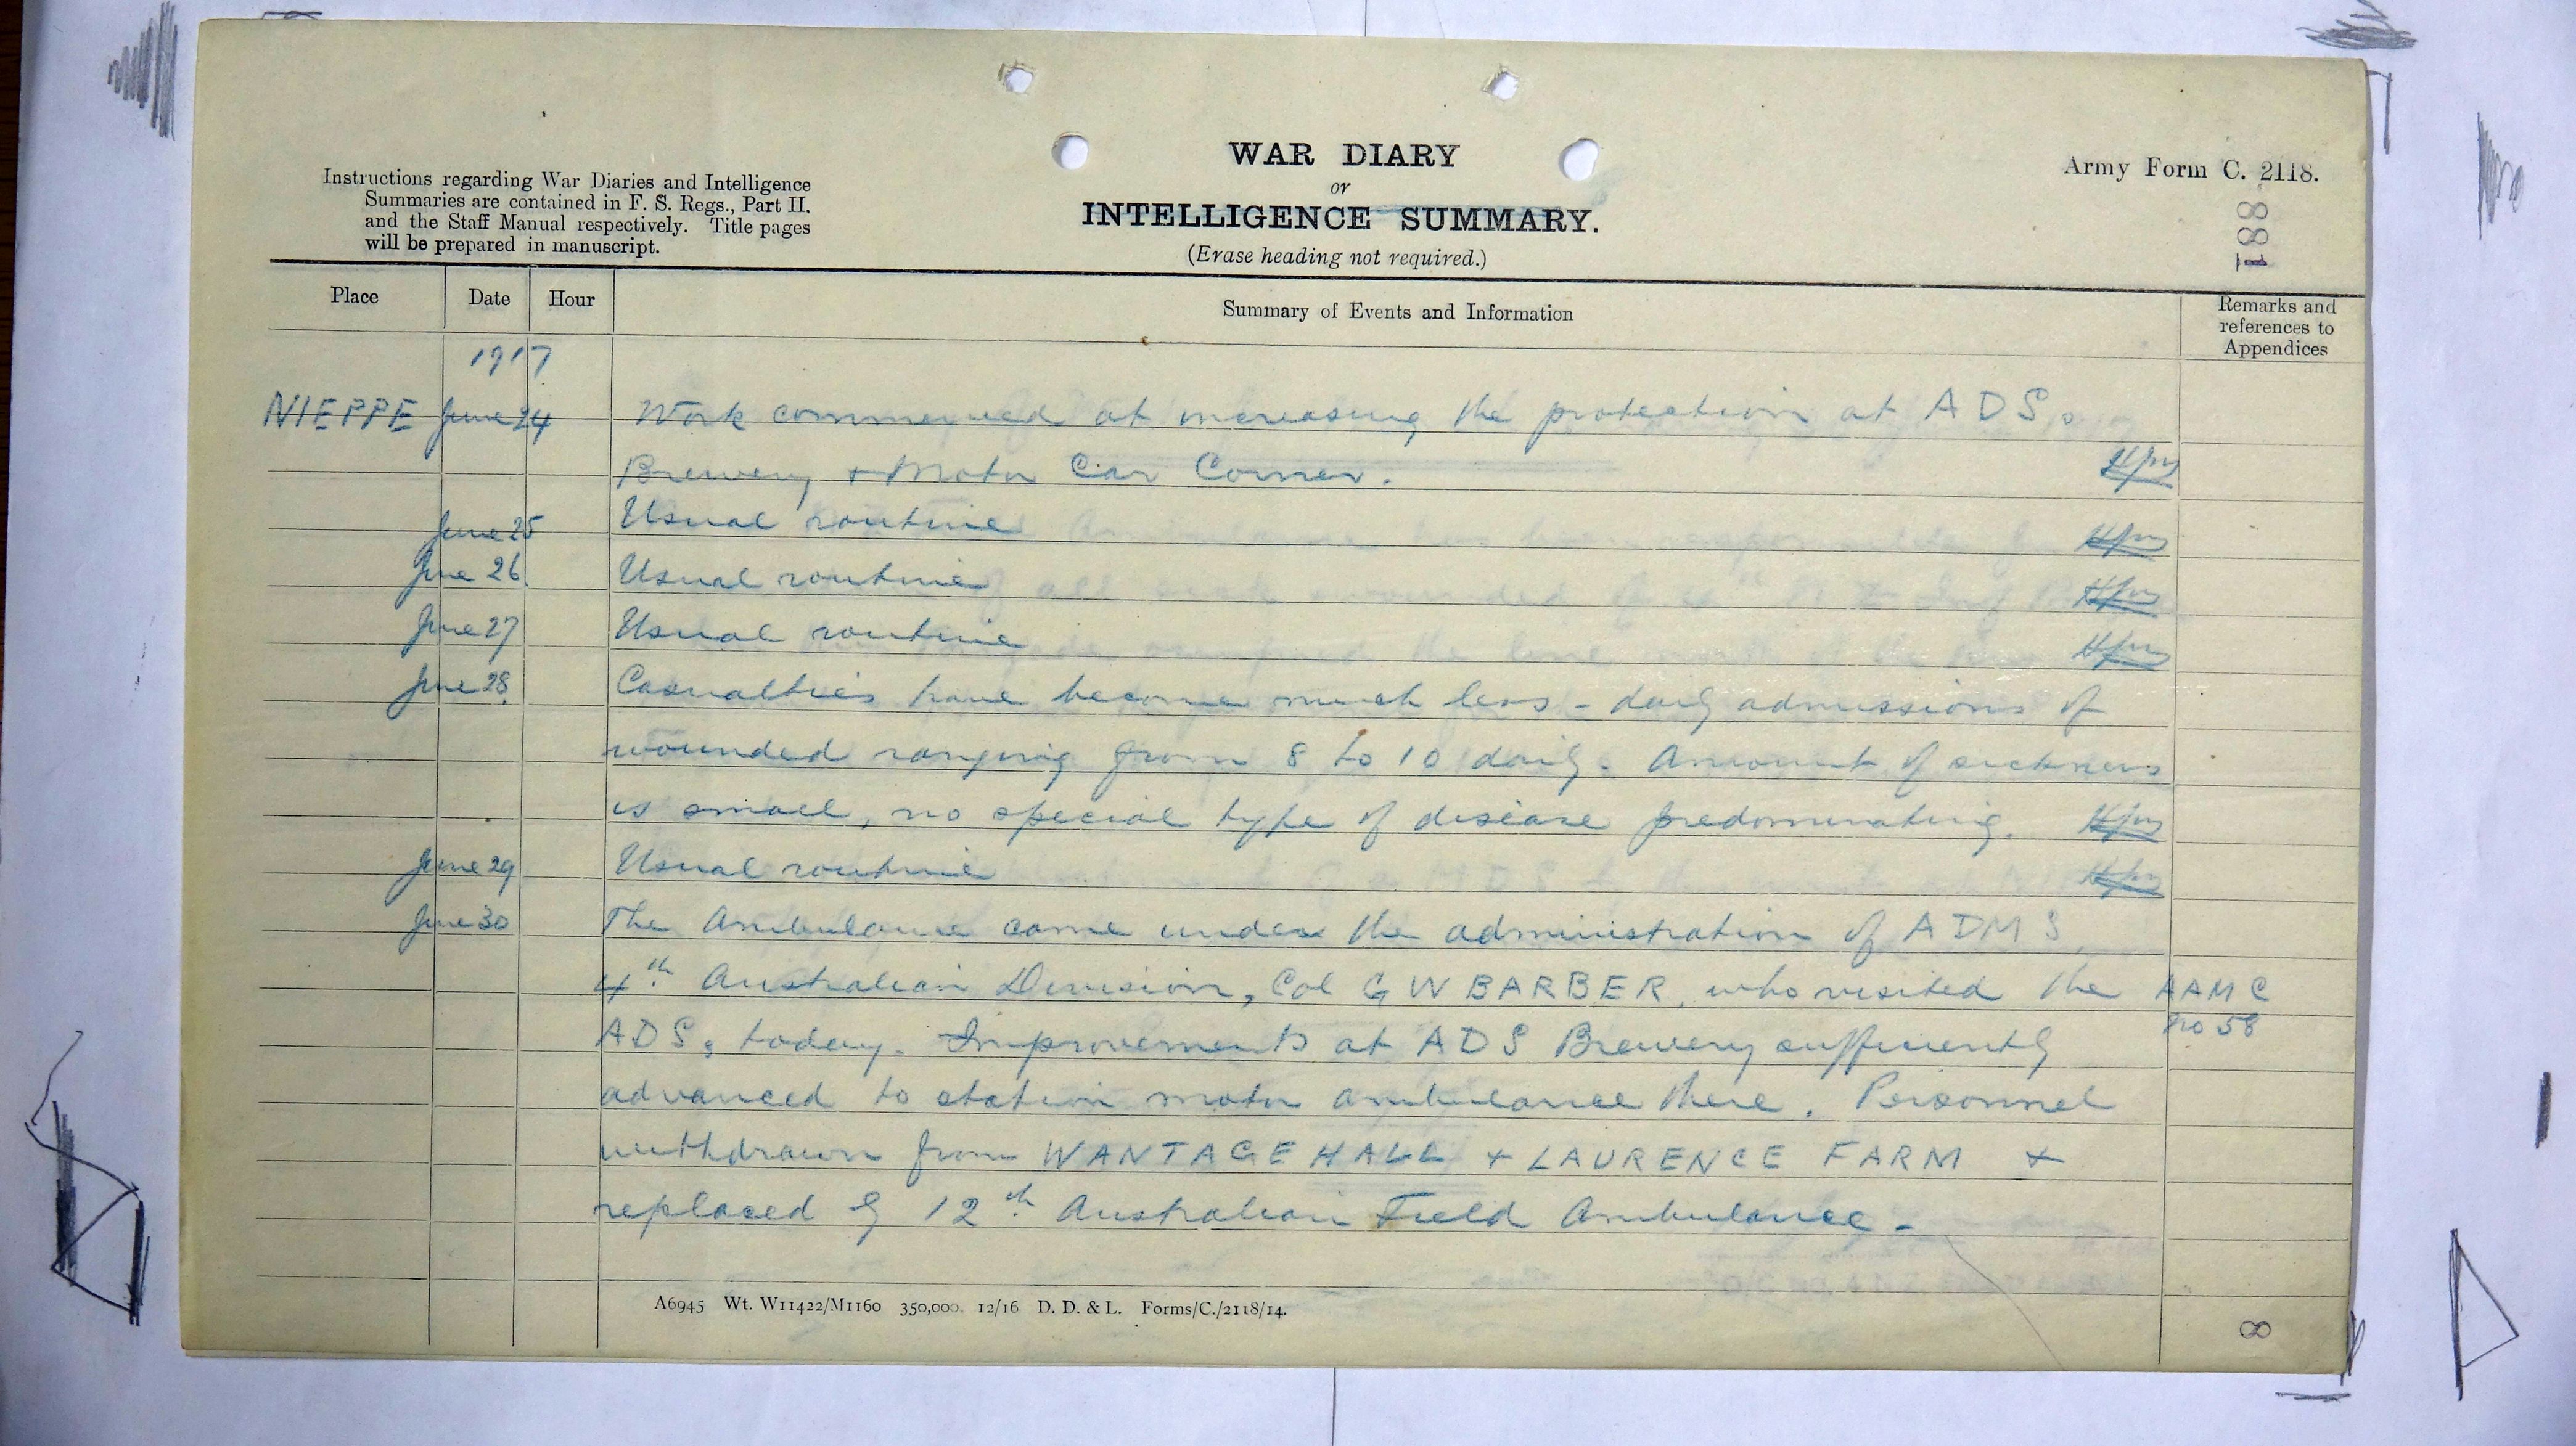 WAR DIARY
or
INTELLIGENCE SUMMARY.
(Erase heading not required.)
Instructions regarding War Diaries and Intelligence
Summaries are contained in F. S. Regs., Part II.
and the Staff Manual respectively. Title pages
will be prepared in manuscript.
Army Form C. 2118.
881
Place Date Hour Summary of Events and Information Remarks and
references to
Appendices
1917
NIEPPE June 24 Work commenced at increasing the protection at ADSs
Brewery + Motor Car Corner.
June 25 Usual routine
June 26 Usual routine
June 27 Usual routine
June 28 Casualties have become much less - daily admissions of
wounded ranging from 8 to 10 daily. Amount of sickness
is small, no special type of disease predominating.
June 29 Usual routine
June 30 The Ambulance came under the administration of ADMS,
4th Australian Division, Col G W BARBER, who visited the AAMC
ADSs today. Improvements at ADS Brewery sufficiently no 58
advanced to station motor ambulance there. Personnel
withdrawn from WANTAGE HALL + LAURENCE FARM +
replaced by 12th Australian Field Ambulance -
A6945 Wt. W11422/M1160 350,000. 12/16 D. D. & L. Forms/C./2118/14.
8